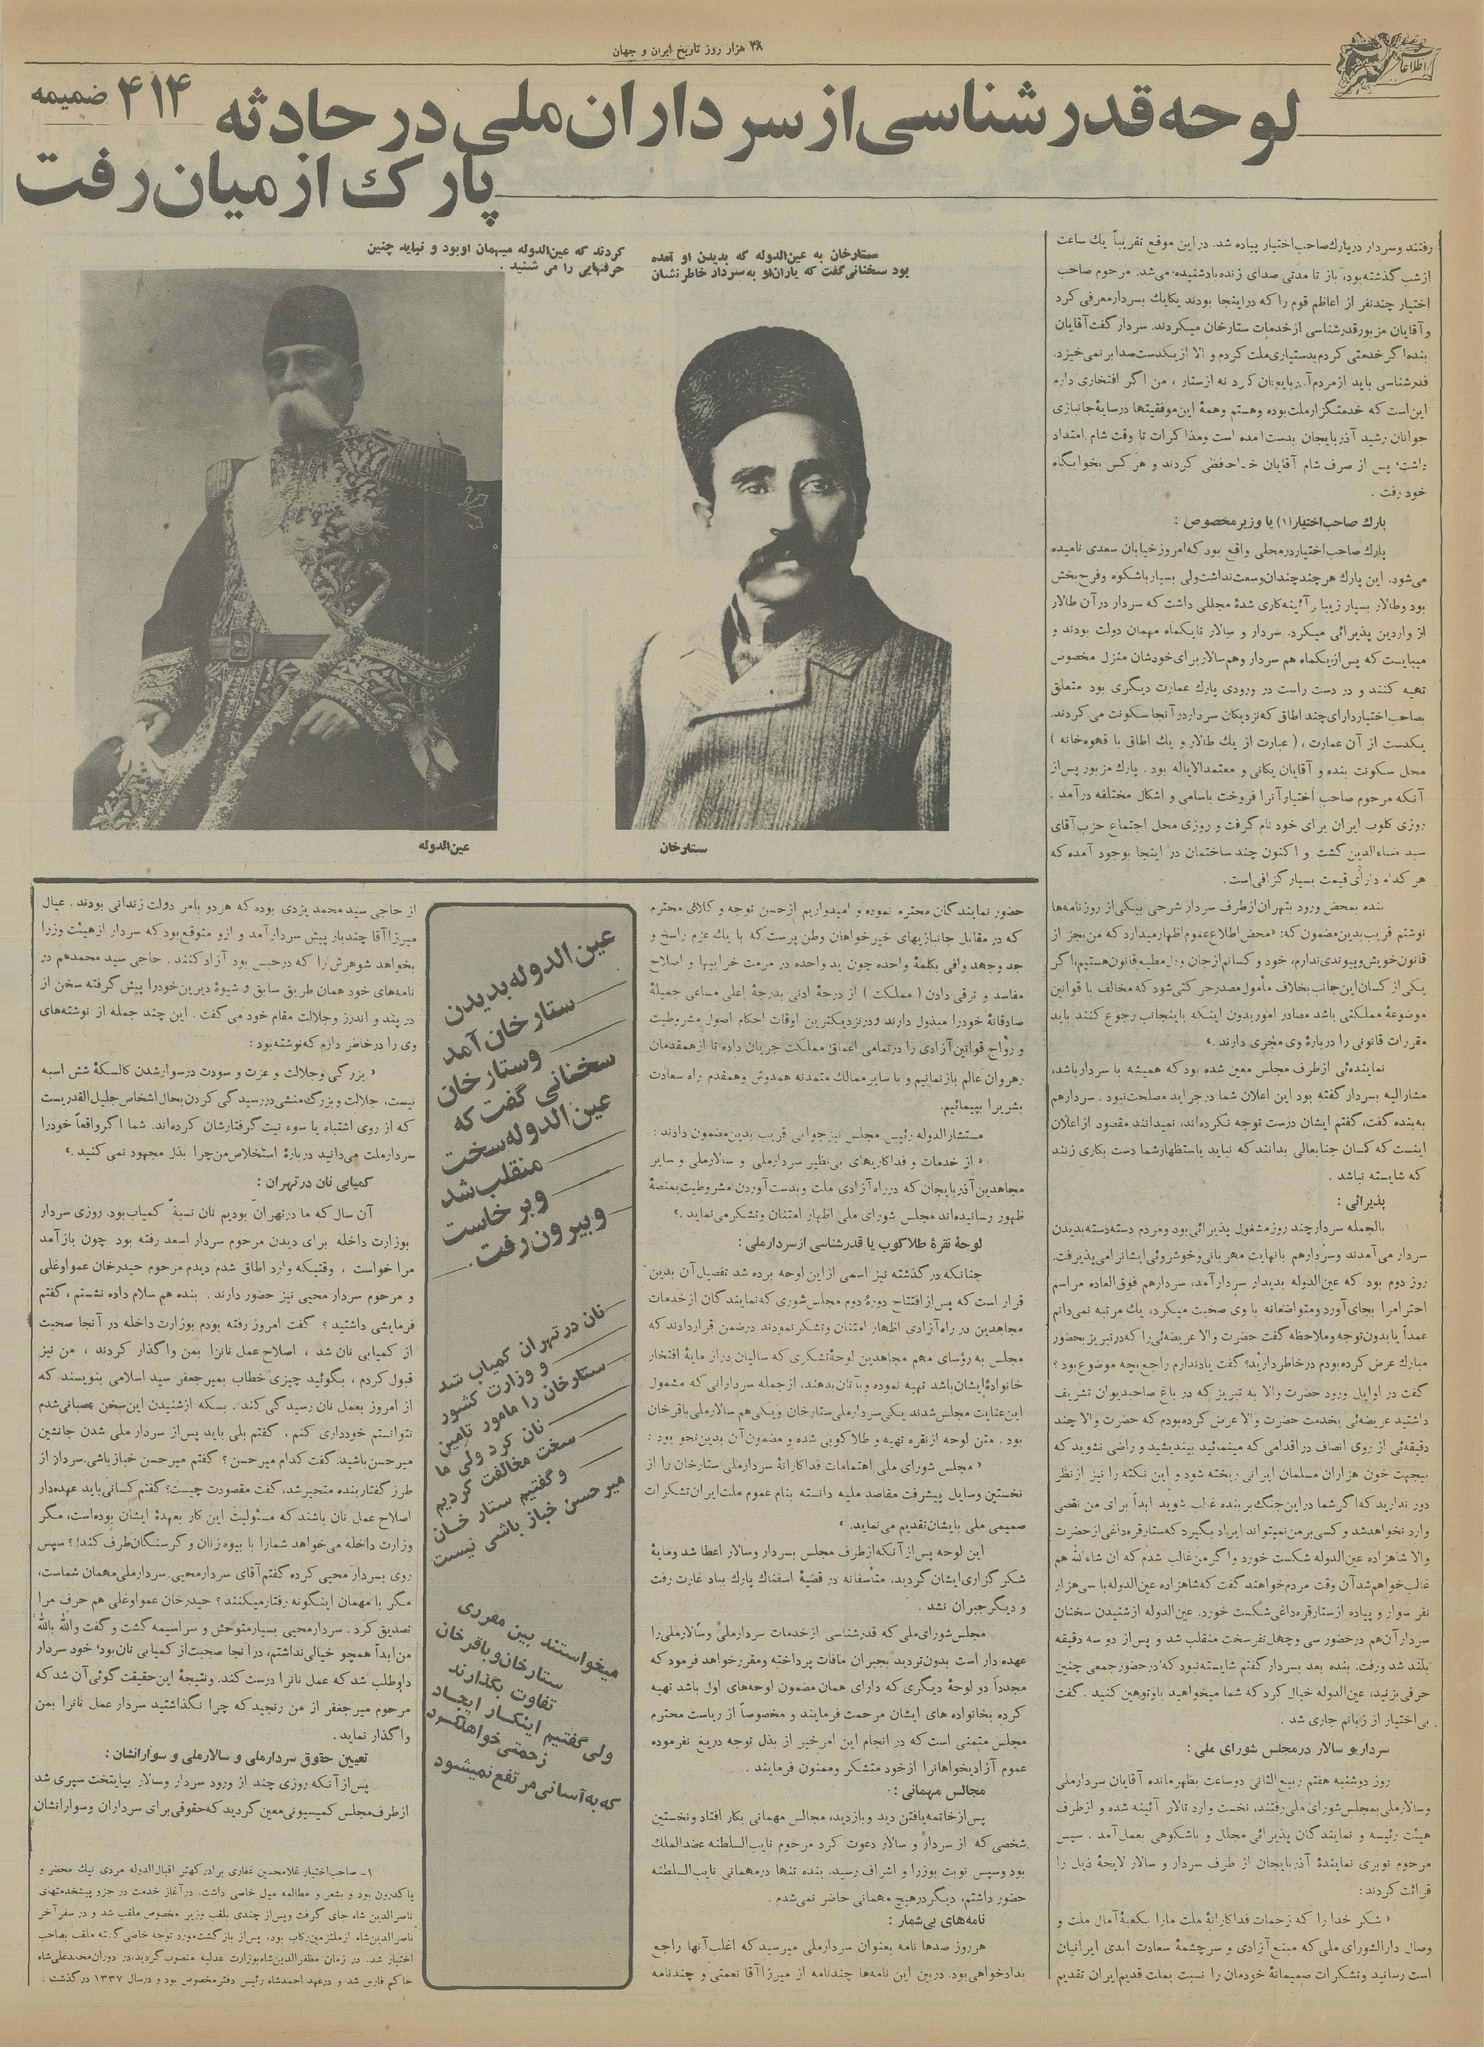 ۲۸ هزار روز تاریخ ایران و جهان
اطلاعات
لوحه قدرشناسی از سرداران ملی در حادثه
پارک از میان رفت
ضمیمه ۴۱۴
ستارخان به عین‌الدوله که بدیدن او آمده
بود سخنانی گفت که یاران او به سردار خاطر نشان
کردند که عین‌الدوله میهمان او بود و نباید چنین
حرفهایی را می شنید .
ستارخان
عین‌الدوله
رفتند و سردار در پارک صاحب اختیار پیاده شد. در این موقع تقریباً یک ساعت
از شب گذشته بود، باز تا مدتی صدای زنده باد شنیده می‌شد. مرحوم صاحب
اختیار چند نفر از اعاظم قوم را که در اینجا بودند یکایک بسردار معرفی کرد
و آقایان مزبور قدرشناسی از خدمات ستارخان میکردند. سردار گفت آقایان
بنده اگر خدمتی کردم بدستیاری ملت کردم و الا از یکدست صدا بر نمی خیزد.
قدرشناسی باید از مردم آذربایجان کرد نه از ستار ، من اگر افتخاری دارم
این است که خدمتگزار ملت بوده و هستم و همهٔ این موفقیتها در سایهٔ جانبازی
جوانان رشید آذربایجان بدست آمده است و مذاکرات تا وقت شام امتداد
داشت، پس از صرف شام آقایان خداحافظی کردند و هر کس بخوابگاه
خود رفت .
پارک صاحب اختیار (۱) یا وزیر مخصوص :
پارک صاحب اختیار در محلی واقع بود که امروز خیابان سعدی نامیده
می‌شود. این پارک هر چند چندان وسعت نداشت ولی بسیار باشکوه و فرح بخش
بود و طالار بسیار زیبا و آئینه کاری شدهٔ مجللی داشت که سردار در آن طالار
از واردین پذیرائی میکرد. سردار و سالار تا یکماه مهمان دولت بودند و
میبایست که پس از یکماه هم سردار و هم سالار برای خودشان منزل مخصوص
تهیه کنند و در دست راست در ورودی پارک عمارت دیگری بود متعلق
بصاحب اختیار دارای چند اطاق که نزدیکان سردار در آنجا سکونت می کردند.
یکدست از آن عمارت ، ( عبارت از یک طالار و یک اطاق با قهوه خانه )
محل سکونت بنده و آقایان یکانی و معتمدالایاله بود . پارک مزبور پس از
آنکه مرحوم صاحب اختیار آنرا فروخت باسامی و اشکال مختلفه درآمد .
روزی کلوب ایران برای خود نام گرفت و روزی محل اجتماع حزب آقای
سید ضیاءالدین گشت و اکنون چند ساختمان در اینجا بوجود آمده که
هر کدام دارای قیمت بسیار گزافی است.
بنده بمحض ورود بتهران از طرف سردار شرحی بیکی از روزنامه‌ها
نوشتم قریب بدین مضمون که: «محض اطلاع عموم اظهار میدارد که من بجز از
قانون خویش و پیوندی ندارم، خود و کسانم از جان و دل مطیع قانون هستیم، اگر
یکی از کسان این جانب بخلاف مأمول مصدر حرکتی شود که مخالف با قوانین
موضوعهٔ مملکتی باشد مصادر امور بدون اینکه باینجانب رجوع کنند باید
مقررات قانونی را دربارهٔ وی مجری دارند.»
نماینده‌ئی از طرف مجلس معین شده بود که همیشه با سردار باشد،
مشارالیه بسردار گفته بود این اعلان شما در جراید مصلحت نبود . سردار هم
به بنده گفت، گفتم ایشان درست توجه نکرده‌اند، نمیدانند مقصود از اعلان
اینست که کسان جنابعالی بدانند که نباید باستظهار شما دست بکاری زنند
که شایسته نباشد .
پذیرائی :
بالجمله سردار چند روز مشغول پذیرائی بود و مردم دسته دسته بدیدن
سردار می‌آمدند و سردار هم با نهایت مهربانی و خوشروئی ایشان را می پذیرفت.
روز دوم بود که عین‌الدوله بدیدار سردار آمد، سردار هم فوق‌العاده مراسم
احترام را بجای آورد و متواضعانه با وی صحبت میکرد، یک مرتبه نمی‌دانم
عمداً یا بدون توجه و ملاحظه گفت حضرت والا عریضه‌ئی را که در تبریز بحضور
مبارک عرض کرده بودم در خاطر دارید؟ گفت یاد ندارم راجع بچه موضوع بود؟
گفت در اوایل ورود حضرت والا به تبریز که در باغ صاحبدیوان تشریف
داشتید عریضه‌ئی بخدمت حضرت والا عرض کرده بودم که حضرت والا چند
دقیقه‌ئی از روی انصاف در اقدامی که مینمائید بیندیشید و راضی نشوید که
بیجهت خون هزاران مسلمان ایرانی ریخته شود و این نکته را نیز از نظر
دور ندارید که اگر شما در این جنگ بر بنده غالب شوید ابداً برای من نقصی
وارد نخواهد شد و کسی بر من نمیتواند ایراد بگیرد که ستار قره‌داغی از حضرت
والا شاهزاده عین‌الدوله شکست خورد و اگر من غالب شدم که ان شاءالله هم
غالب خواهم شد آن وقت مردم خواهند گفت که شاهزاده عین‌الدوله با سی هزار
نفر سوار و پیاده از ستار قره‌داغی شکست خورد. عین‌الدوله از شنیدن سخنان
سردار آن هم در حضور سی و چهل نفر سخت منقلب شد و پس از دو سه دقیقه
بلند شد و رفت. بنده بعد بسردار گفتم شایسته نبود که در حضور جمعی چنین
حرفی بزنید، عین‌الدوله خیال کرد که شما میخواهید باو توهین کنید . گفت
بی اختیار از زبانم جاری شد .
سردار و سالار در مجلس شورای ملی :
روز دوشنبه هفتم ربیع‌الثانی دو ساعت بظهر مانده آقایان سردار ملی
و سالار ملی بمجلس شورای ملی رفتند، نخست وارد تالار آئینه شده و از طرف
هیئت رئیسه و نمایندگان پذیرائی مجلل و باشکوهی بعمل آمد . سپس
مرحوم نوبری نمایندهٔ آذربایجان از طرف سردار و سالار لایحهٔ ذیل را
قرائت کردند :
« شکر خدا را که زحمات فداکارانهٔ ملت ما را بکعبهٔ آمال ملت و
وصال دارالشورای ملی که منبع آزادی و سرچشمهٔ سعادت ابدی ایرانیان
است رسانید و تشکرات صمیمانهٔ خودمان را نسبت بملت قدیم ایران تقدیم
حضور نمایندگان محترم نموده و امیدواریم از حسن توجه و کلای محترم
که در مقابل جانبازیهای خیرخواهان وطن پرست که با یک عزم راسخ و
جد و جهد وافی بکلمهٔ واحده چون ید واحده در مرمت خرابیها و اصلاح
مفاسد و ترقی دادن ( مملکت ) از درجهٔ ادنی بدرجهٔ اعلی مساعی جمیلهٔ
صادقانهٔ خود را مبذول دارند و در نزدیکترین اوقات احکام اصول مشروطیت
و رواج قوانین آزادی را در تمامی اعماق مملکت جریان داده تا از همقدمان
رهروان عالم باز نمانیم و با سایر ممالک متمدنه همدوش و همقدم راه سعادت
بشری را بپیمائیم.
مستشارالدوله رئیس مجلس نیز جوابی قریب بدین مضمون دادند :
« از خدمات و فداکاریهای بی‌نظیر سردار ملی و سالار ملی و سایر
مجاهدین آذربایجان که در راه آزادی ملت و بدست آوردن مشروطیت بمنصهٔ
ظهور رسانیده‌اند مجلس شورای ملی اظهار امتنان و تشکر می‌نماید .»
لوحهٔ نقرهٔ طلاکوب یا قدرشناسی از سردار ملی :
چنانکه در گذشته نیز اسمی از این لوحه برده شد تفصیل آن بدین
قرار است که پس از افتتاح دورهٔ دوم مجلس شوری که نمایندگان از خدمات
مجاهدین در راه آزادی اظهار امتنان و تشکر نمودند در ضمن قرار دادند که
مجلس به رؤسای مهم مجاهدین لوحهٔ تشکری که سالیان دراز مایهٔ افتخار
خانوادهٔ ایشان باشد تهیه نموده و بآنان بدهند، از جمله سردارانی که مشمول
این عنایت مجلس شدند یکی سردار ملی ستارخان و یکی هم سالار ملی باقرخان
بود . متن لوحه از نقره تهیه و طلاکوبی شده و مضمون آن بدین نحو بود :
« مجلس شورای ملی اهتمامات فداکارانهٔ سردار ملی ستارخان را از
نخستین وسایل پیشرفت مقاصد ملیه دانسته بنام عموم ملت ایران تشکرات
صمیمی ملی بایشان تقدیم می‌نماید. »
این لوحه پس از آنکه از طرف مجلس بسردار و سالار اعطا شد و مایهٔ
شکر گزاری ایشان گردید. متأسفانه در قضیهٔ اسفناک پارک بباد غارت رفت
و دیگر جبران نشد .
مجلس شورای ملی که قدرشناسی از خدمات سردار ملی و سالار ملی را
عهده دار است بدون تردید بجبران مافات پرداخته و مقرر خواهد فرمود که
مجدداً دو لوحهٔ دیگری که دارای همان مضمون لوحه‌های اول باشد تهیه
کرده بخانواده های ایشان مرحمت فرمایند و مخصوصاً از ریاست محترم
مجلس متمنی است که در انجام این امر خیر از بذل توجه دریغ نفرموده
عموم آزادیخواهان را از خود متشکر و ممنون فرمایند .
مجالس مهمانی :
پس از خاتمه یافتن دید و بازدید، مجالس مهمانی بکار افتاد و نخستین
شخصی که از سردار و سالار دعوت کرد مرحوم نایب السلطنه عضدالملک
بود و سپس نوبت بوزرا و اشراف رسید. بنده تنها در مهمانی نایب‌السلطنه
حضور داشتم، دیگر در هیچ مهمانی حاضر نمی‌شدم .
نامه‌های بی‌شمار :
هر روز صدها نامه بعنوان سردار ملی میرسید که اغلب آنها راجع
بدادخواهی بود. در بین این نامه‌ها چند نامه از میرزا آقا نعمتی و چند نامه
عین‌الدوله بدیدن
ستارخان آمد
و ستارخان
سخنانی گفت که
عین‌الدوله سخت
منقلب شد
و برخاست
و بیرون رفت.
نان در تهران کمیاب شد
و وزارت کشور
ستارخان را مأمور تأمین
نان کرد ولی ما
سخت مخالفت کردیم
و گفتیم ستارخان
میرحسن خباز باشی نیست
میخواستند بین مقرری
ستارخان و باقرخان
تفاوت بگذارند
ولی گفتیم اینکار ایجاد
زحمتی خواهد کرد
که به آسانی مرتفع نمیشود
از حاجی سید محمد یزدی بوده که هر دو بامر دولت زندانی بودند . عیال
میرزا آقا چندبار پیش سردار آمد و از او متوقع بود که سردار از هیئت وزرا
بخواهد شوهرش را که در حبس بود آزاد کنند . حاجی سید محمد هم در
نامه‌های خود همان طریق سابق و شیوهٔ دیرین خود را پیش گرفته سخن از
در پند و اندرز و جلالت مقام خود می گفت . این چند جمله از نوشته‌های
وی را در خاطر دارم که نوشته بود :
« بزرگی و جلالت و عزت و سودت در سوار شدن کالسکهٔ شش اسبه
نیست، جلالت و بزرگ منشی در رسیدگی کردن بحال اشخاص جلیل القدریست
که از روی اشتباه یا سوء نیت گرفتارشان کرده‌اند. شما اگر واقعاً خود را
سردار ملت می‌دانید دربارهٔ استخلاص من چرا بذل مجهود نمی کنید .»
کمیابی نان در تهران :
آن سال که ما در تهران بودیم نان نسبةً کمیاب بود. روزی سردار
بوزارت داخله برای دیدن مرحوم سردار اسعد رفته بود چون باز آمد
مرا خواست ، وقتیکه وارد اطاق شدم دیدم مرحوم حیدرخان عمواوغلی
و مرحوم سردار محیی نیز حضور دارند . بنده هم سلام داده نشستم ، گفتم
فرمایشی داشتید ؟ گفت امروز رفته بودم بوزارت داخله در آنجا صحبت
از کمیابی نان شد ، اصلاح عمل نان را بمن واگذار کردند ، من نیز
قبول کردم ، بگوئید چیزی خطاب بمیرجعفر سید اسلامی بنویسند که
از امروز بعمل نان رسیدگی کند. بسکه از شنیدن این سخن عصبانی شدم
نتوانستم خودداری کنم ، گفتم بلی باید پس از سردار ملی شدن جانشین
میرحسن باشید. گفت کدام میرحسن ؟ گفتم میرحسن خباز باشی. سردار از
طرز گفتار بنده متحیر شد، گفت مقصودت چیست؟ گفتم کسانی باید عهده‌دار
اصلاح عمل نان باشند که مسئولیت این کار بعهدهٔ ایشان بوده است، مگر
وزارت داخله می‌خواهد شما را با بیوه زنان و گرسنگان طرف کند!؟ سپس
روی بسردار محیی کرده گفتم آقای سردار محیی. سردار ملی مهمان شماست،
مگر با مهمان اینگونه رفتار میکنند ؟ حیدرخان عمواوغلی هم حرف مرا
تصدیق کرد . سردار محیی بسیار متوحش و سراسیمه گشت و گفت والله بالله
من ابداً همچو خیالی نداشتم، در آنجا صحبت از کمیابی نان بود، خود سردار
داوطلب شد که عمل نان را درست کند. و نتیجهٔ این حقیقت گوئی آن شد که
مرحوم میرجعفر از من رنجید که چرا نگذاشتید سردار عمل نان را بمن
واگذار نماید .
تعیین حقوق سردار ملی و سالار ملی و سوارانشان :
پس از آنکه روزی چند از ورود سردار و سالار بپایتخت سپری شد
از طرف مجلس کمیسیونی معین گردید که حقوقی برای سرداران و سوارانشان
۱ـ صاحب اختیار غلامحسین غفاری برادر کهتر اقبال‌الدوله مردی نیک محضر و
پاکدرون بود و بشعر و مطالعه میل خاصی داشت. در آغاز خدمت در جزو پیشخدمتهای
ناصرالدین شاه جای گرفت و پس از چندی بلقب وزیر مخصوص ملقب شد و در سفر آخر
ناصرالدین شاه از ملتزمین رکاب بود، پس از بازگشت مورد توجه خاصی گشته ملقب بصاحب
اختیار شد. در زمان مظفرالدین شاه بوزارت عدلیه منصوب گردید، در دوران محمدعلی شاه
حاکم فارس شد و در عهد احمدشاه رئیس دفتر مخصوص بود و در سال ۱۳۳۷ درگذشت .